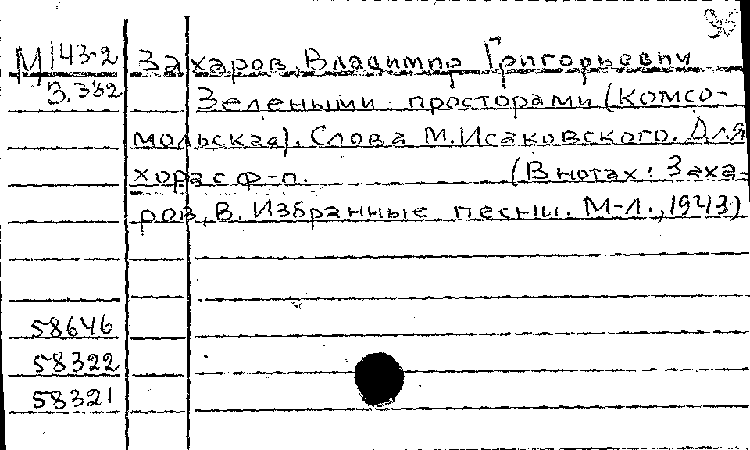 М 43-2 Захаров, Владимир Григорьевич
3.332 Зелеными просторами (комсо-
мольская). Слова М.Исаковского. Для
хора с ф-п. (В нотах: Заха-
ров, В. Избранные песни. М-Л., 1943)
58646
58322
58321